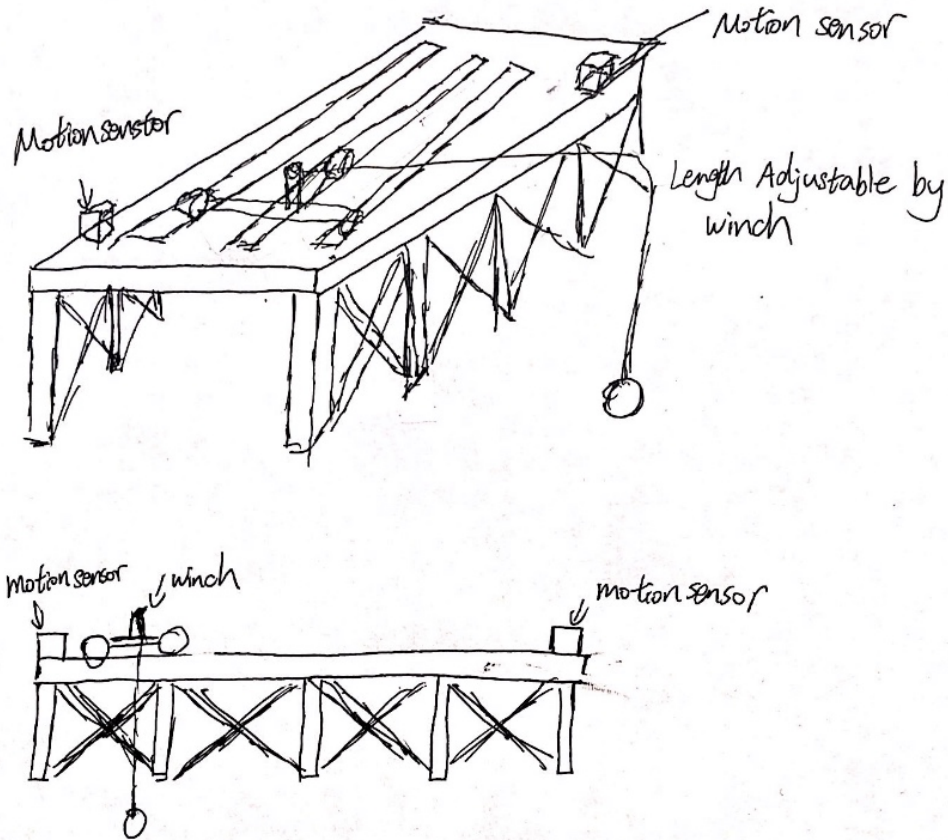 Motion sensor
Motionsenstor
Length Adjustable by
winch
motionsensor
winch
motionsensor